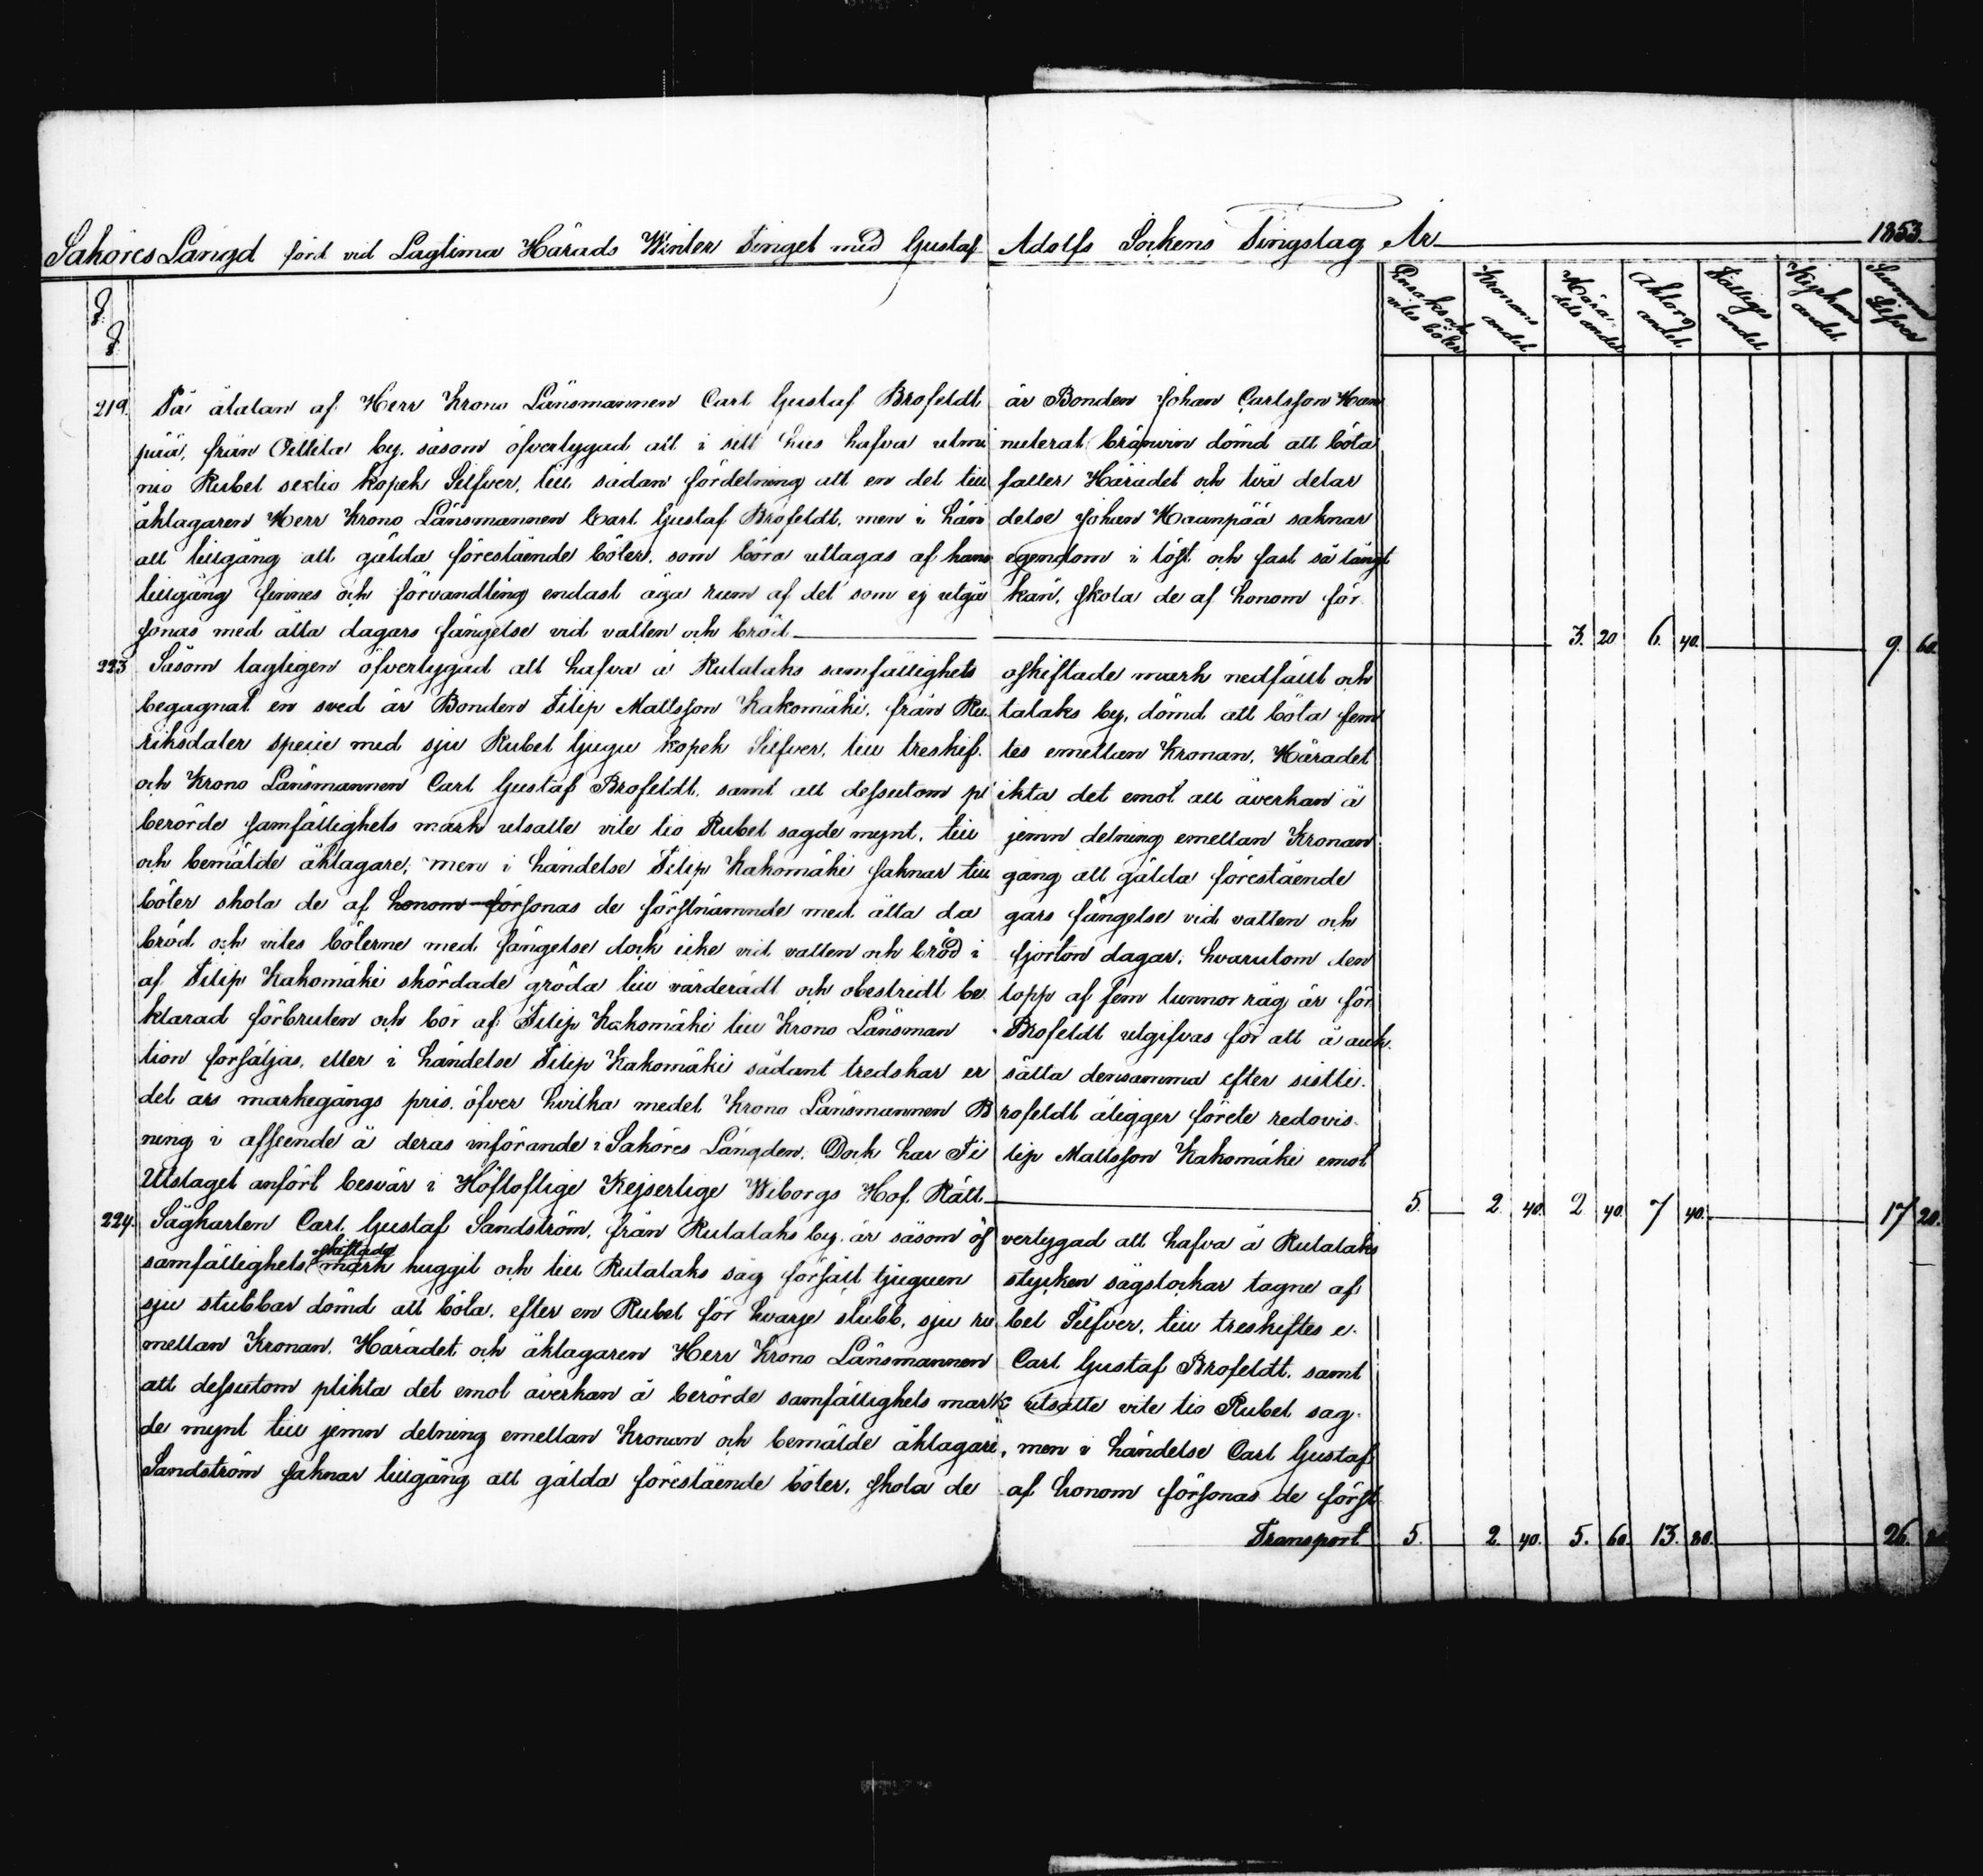 Sakören Längd förd vid Lagtima Härads Winter Tinget med Gustaf Adolfs Sockens Tingslag År 1853.
§ §
Ensaks och vites böter
Kronans andel
Häradets andel
Aktors andel.
Fattiges andel
Kyrkans andel.
Summa Silfver
219. På åtalan af Herr Krono Länsmannen Carl Gustaf Brofeldt är Bonden Johan Carlsson Haan
pää, från by, såsom öfvertygad att i sitt hus hafva utmi nuterat bränvin dömd att böta
nio Rubel sextio kopek Silfver, till sådan fördelning att en del till faller Häradet och två delar
åklagaren Herr Krono Länsmannen Carl Gustaf Brofeldt, men i hän delse Johan Haanpää saknar
all tillgång att gälda förestående böter, som böra uttagas af hans egendom i löst och fast så långt
tillgång finnes och förvandling endast äga rum af det som ej utgå kan, skola de af honom för
sonas med åtta dagars fängelse vid vatten och bröd 3. 20 6. 40. 9. 60.
223 Såsom lagligen öfvertygad att hafva å Rutalaks samfällighets oskiftade mark nedfällt och
begagnat en sved är Bonden Filip Mattsson Kakomäki, från Ru talaks by, dömd att böta fem
riksdaler specie med sju Rubel tjugu kopek Silfver, till treskif tes emellan Kronan, Häradet
och Krono Länsmannen Carl Gustaf Brofeldt, samt att dessutom pl ikta det emot all åverkan å
berörde samfällighets mark utsatte vite tio Rubel sagde mynt, till jemn delning emellan Kronan
och bemälde åklagare; men i händelse Filip Kakomäki saknar till gång att gälda förestående
böter skola de af honom försonas de förstnämnde med åtta da gars fängelse vid vatten och
bröd och vites böterne med fängelse dock icke vid vatten och bröd i fjorton dagar, hvarutom den
af Filip Kakomäki skördade gröda till värderadt och obestridt be lopp af fem tunnor råg är för
klarad förbruten och bör af Filip Kakomäki till Krono Länsman Brofeldt utgifvas för att å auk
tion försäljas, eller i händelse Filip Kakomäki sådant tredskar er sätta densamma efter sistli
det års markegångs pris. öfver hvilka medel Krono Länsmannen B rofeldt åligger förete redovis
ning i afseende å deras införande i Sakören Längden. Dock har Fi lip Mattsson Kakomäki emot
Utslaget anfört besvär i Högloflige Kejserlige Wiborgs Hof Rätt 5. 2. 40. 2 40. 7 40. 17 20.
224. Sågkarlen Carl Gustaf Sandström, från Rutalaks by, är såsom öf vertygad att hafva å Rutalaks
samfällighets oskiftade mark huggit och till Rutalaks såg försålt tjuguen stycken sågstockar tagne af
sju stubbar dömd att böta, efter en Rubel för hvarje stubb, sju ru bel Silfver, till treskiftes e
mellan Kronan, Häradet och åklagaren Herr Krono Länsmannen Carl Gustaf Brofeldt, samt
att dessutom plikta det emot åverkan å berörde samfällighets mark utsatte vite tio Rubel sag
de mynt till jemn delning emellan Kronan och bemälde åklagare, men i händelse Carl Gustaf
Sandström saknar tillgång att gälda förestående böter, skola de af honom försonas de först
Transport 5. 2. 40. 5. 60. 13. 80. 26.